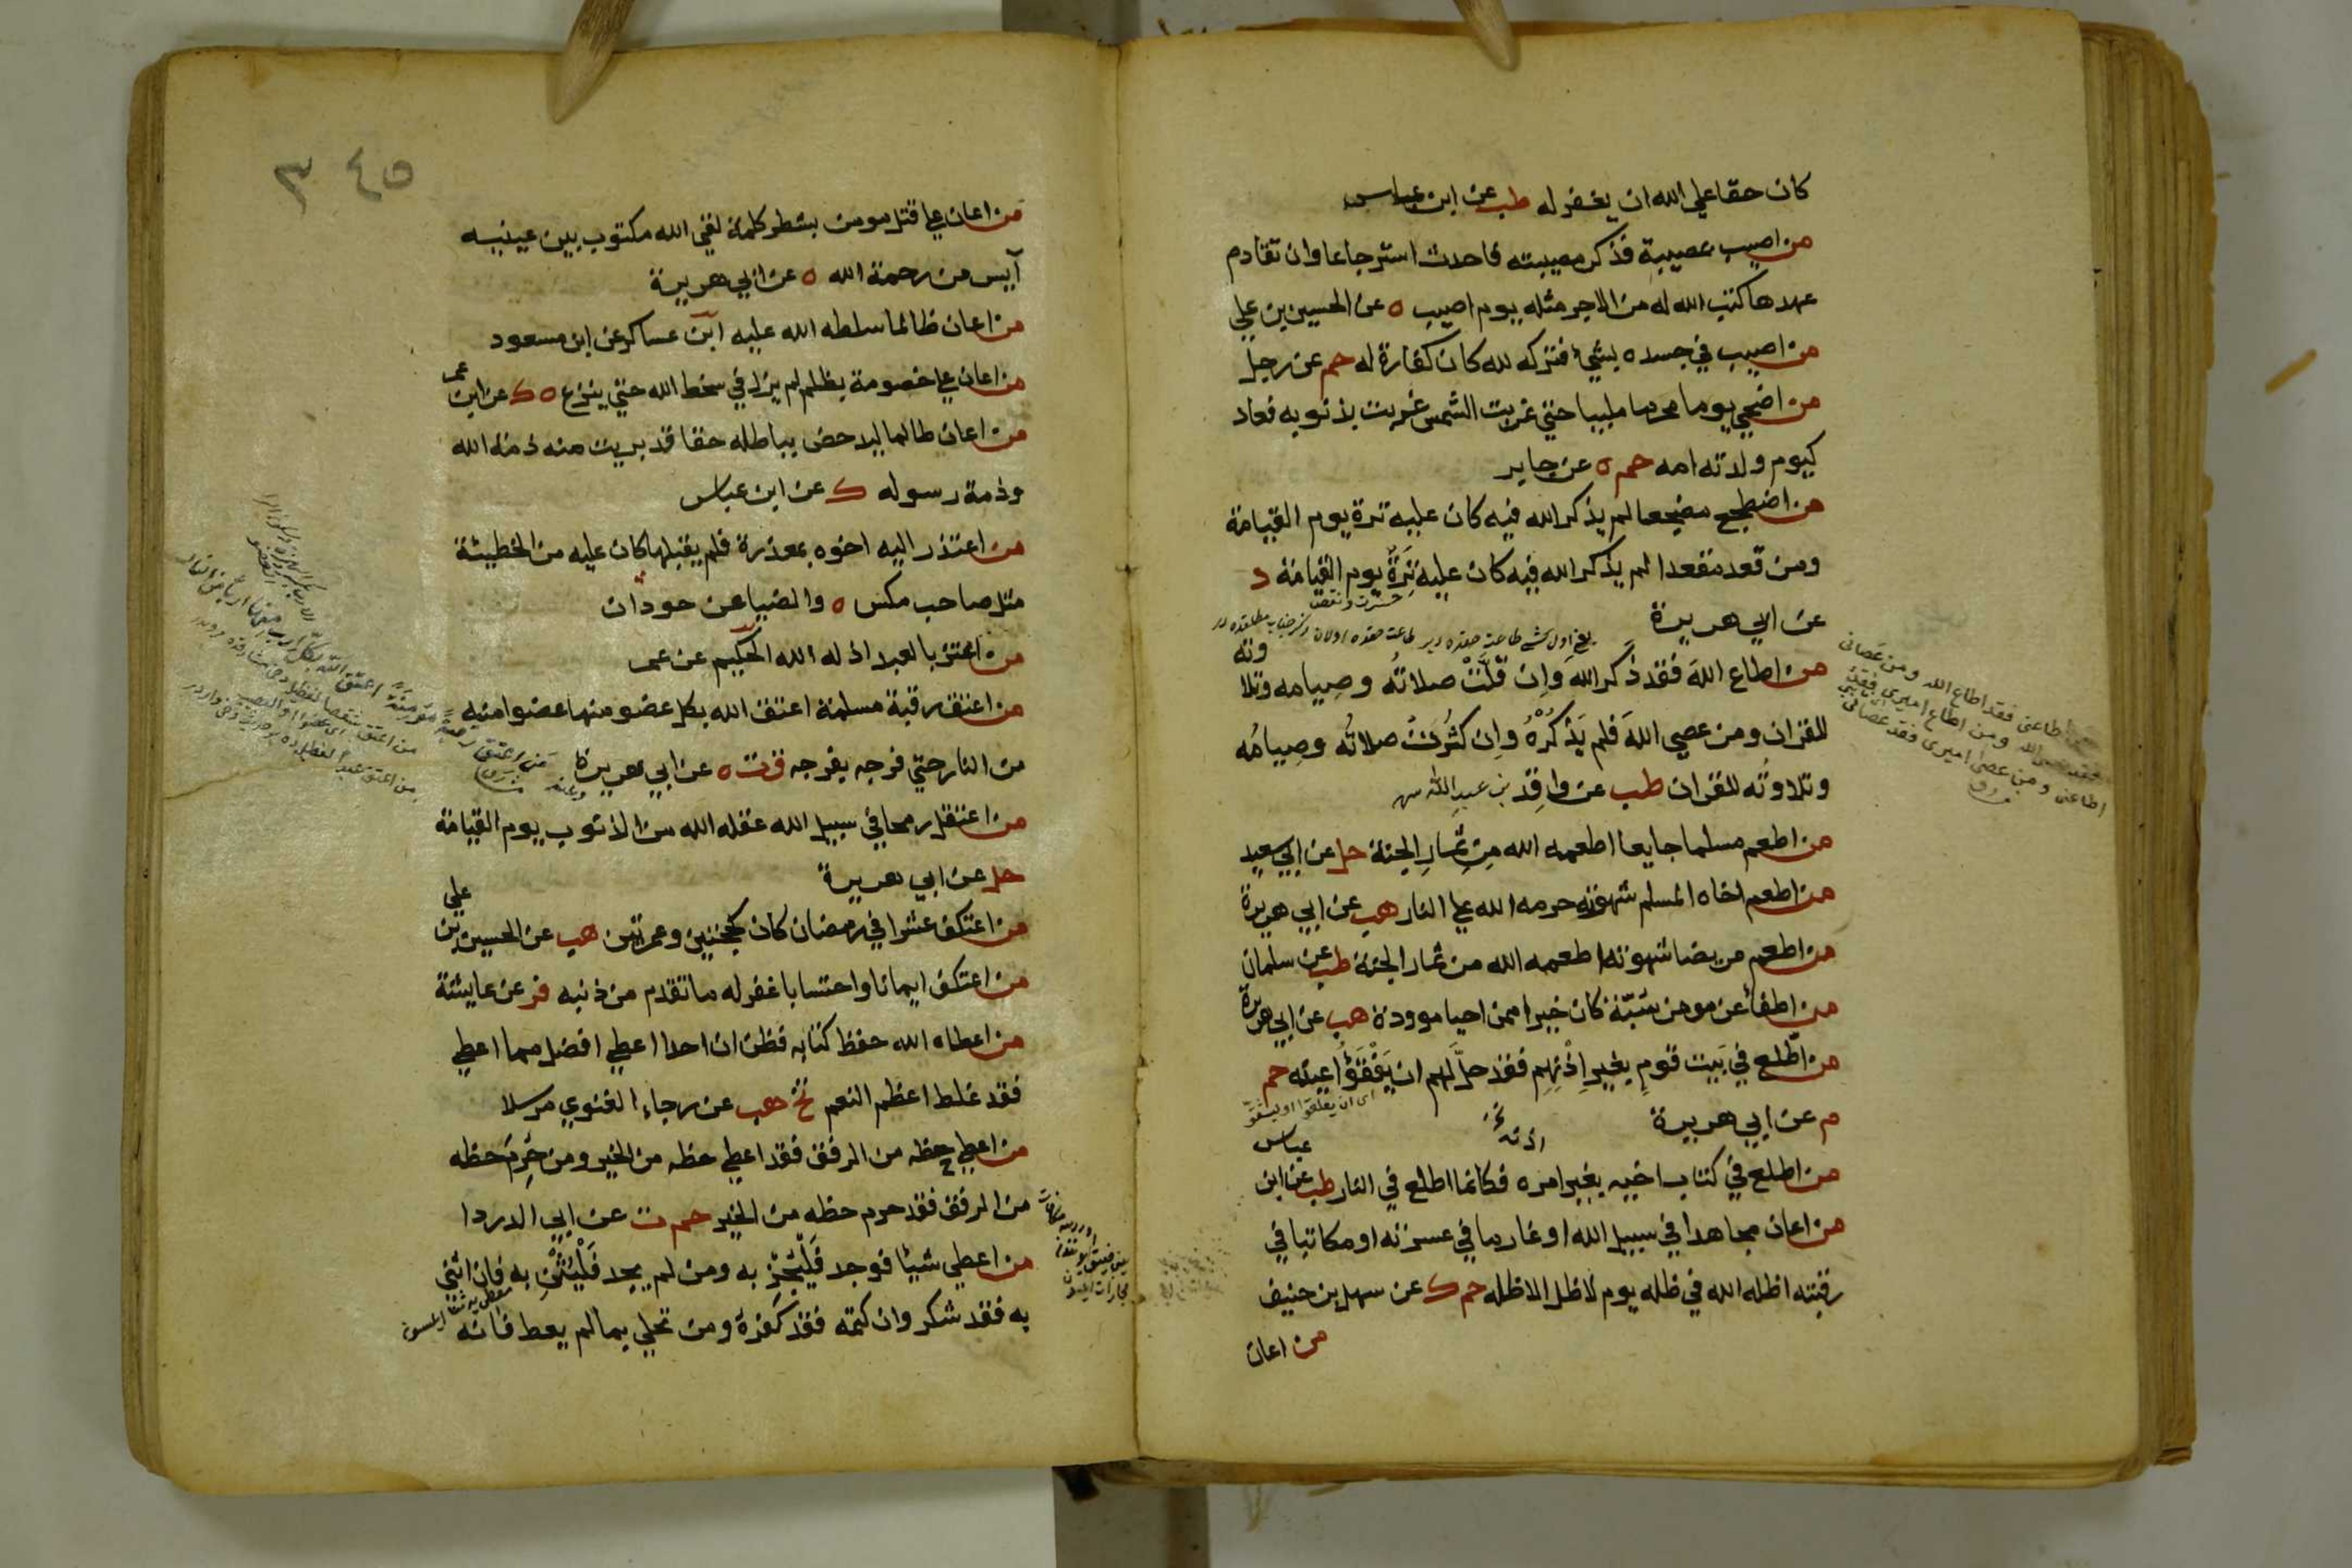 كان حقا علي الله ان يغفر له طب عن ابن عباس
من اصيب بمصيبة فذكر مصيبته فاحدث استرجاعا وان تقادم
عهدها كتب الله له من الاجر مثله يوم اصيب ه عن الحسين بن علي
من اصيب في جسده بشيء فتركه لله كان كفارة له حم عن رجل
من اضحي يوما محرما ملبيا حتي غربت الشمس غربت بذنوبه فعاد
كيوم ولدته امه حم ه عن جابر
من اضطجع مضجعا لم يذكر الله فيه كان عليه ترة يوم القيامة
ومن قعد مقعدا لم يذكر الله فيه كان عليه تِرَةٌ يوم القيامة د
حسرت ونقصا
عن ابي هريرة
من اطاع اللهَ فقد ذَكَر اللهَ وَاِن قَلَّتْ صلاتُه وصِيامه وتلاوته
للقران ومن عصي اللهَ فلم يَذْكُرْهُ وِان كثُرَتْ صلاتُه وصِيامُه
وتلاوتُه للقران طب عن واقِد بن عبد الله
من اطعم مسلما جايعا اطعمه الله مِن ثِمارِ الجنة حل عن ابي سعيد
من اطعم اخاه المسلم شهوته حرمه الله علي النار هب عن ابي هريرة
من اطعم مريضا شهوته اطعمه الله من ثمار الجنة طب عن سلمان
من اطفأ عن مومن سيّئة كان خيرا ممن احيا موودة هب عن ابي هريرة
من اطّلع في بَيت قومٍ بغيرِ اِذْنِهِم فقد حلَّ لهم ان يَفْقَؤُا عينه حم
م عن ابي هريرة
اذنه نخ
من اطلع في كتاب اخيه بغير امره فكانما اطلع في النار طب عن ابن عباس
من اعان مجاهدا في سبيل الله او غارما في عسرته او مكاتبا في
رقبته اظله الله في ظله يوم لا ظل الا ظله حم ك عن سهل بن حنيف
من اعان
اطاعني فقد اطاع الله ومن عصاني
الله ومن اطاع اميري فقد
اطاعني ومن عصى اميري فقد عصاني
٣٤٥
من اعان علي قتل مومن بشطر كلمة لقي الله مكتوب بين عينيه
آيس من رحمة الله ه عن ابي هريرة
من اعان ظالما سلطه الله عليه ابن عساكر عن ابن مسعود
من اعان علي خصومة بظلم لم يزل في سخط الله حتي ينزع ه ك عن ابن عمر
من اعان ظالما ليدحض بباطله حقا قد بريت منه ذمة الله
وذمة رسوله ك عن ابن عباس
من اعتذر اليه اخوه بمعذرة فلم يقبلها كان عليه من الخطيئة
مثل صاحب مكس ه والضيا عن جودان
من اعتز بالعبد اذله الله الحكيم عن عمر
من اعتق رقبة مسلمة اعتق الله بكل عضو منها عضوا منه
من النار حتي فرجه بفرجه ق ت ه عن ابي هريرة
من اعتقل رمحا في سبيل الله عقله الله من الذنوب يوم القيامة
حل عن ابي هريرة
من اعتكف عشرا في رمضان كان كحجتين وعمرتين هب عن الحسين بن علي
من اعتكف ايمانا واحتسابا غفر له ما تقدم من ذنبه فر عن عايشة
من اعطاه الله حفظ كتابه فظن ان احدا اعطي افضل مما اعطي
فقد غلط اعظم النعم تخ هب عن رجاء الغنوي مرسلا
من اعطي حظه من الرفق فقد اعطي حظه من الخير ومن حُرِمَ حظه
من الرفق فقد حرم حظه من الخير حم ت عن ابي الدردا
من اعطي شيئا فوجد فَلْيَجْزِ به ومن لم يجد فَلْيُثْنِ به فان اثنى
به فقد شكر وان كتمه فقد كَفَرَهُ ومن تحلي بما لم يعط فانه